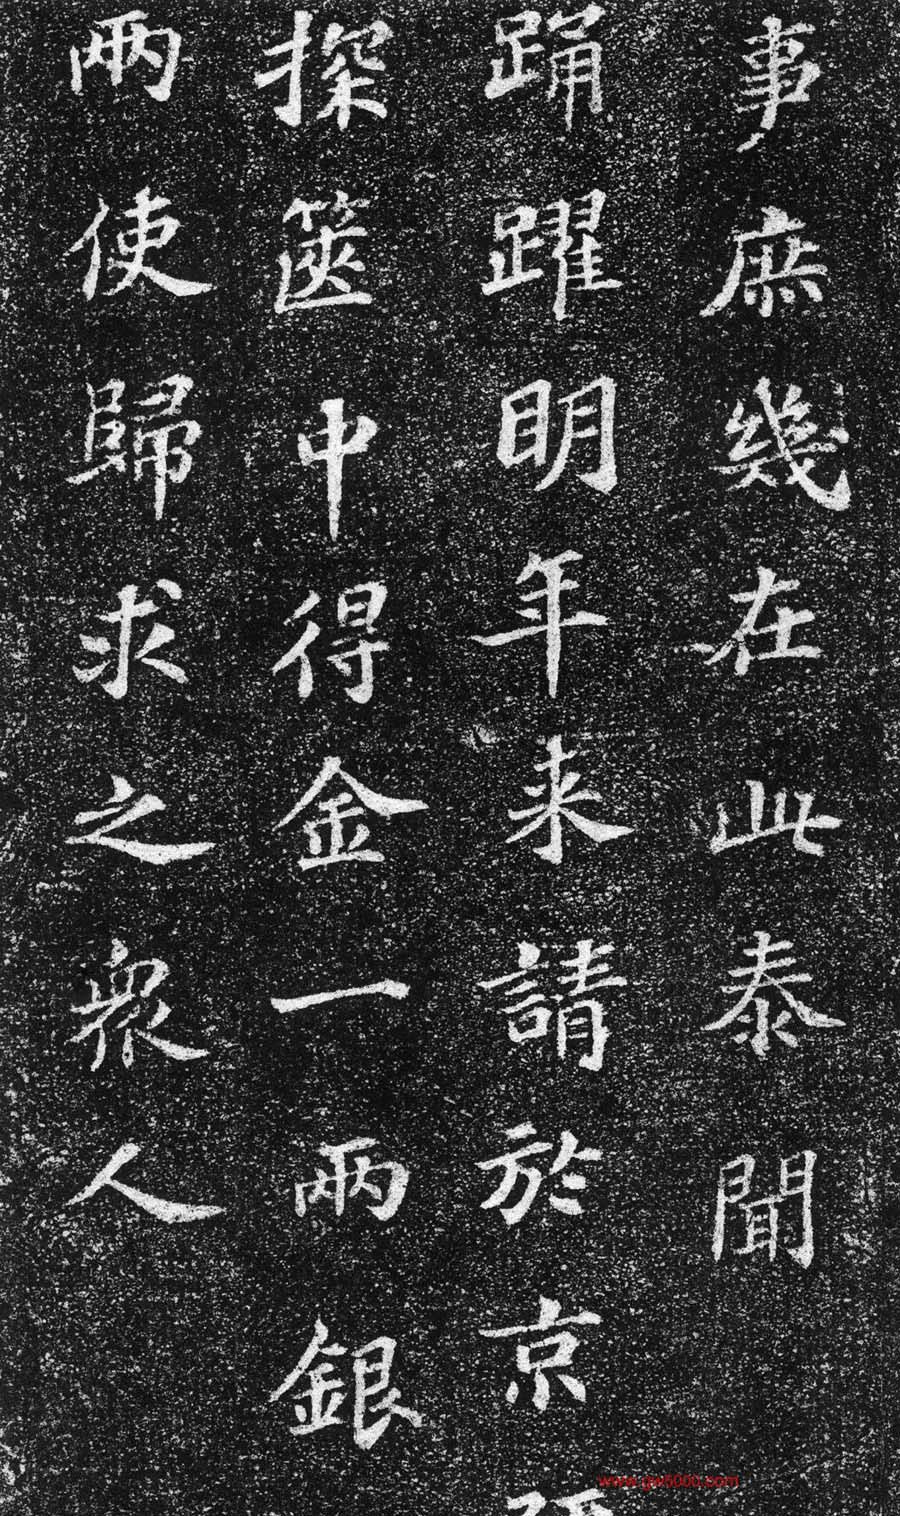 事庶幾在此泰聞
踊躍明年來請於京
探篋中得金一兩銀
兩使歸求之衆人
www.gw5000.com